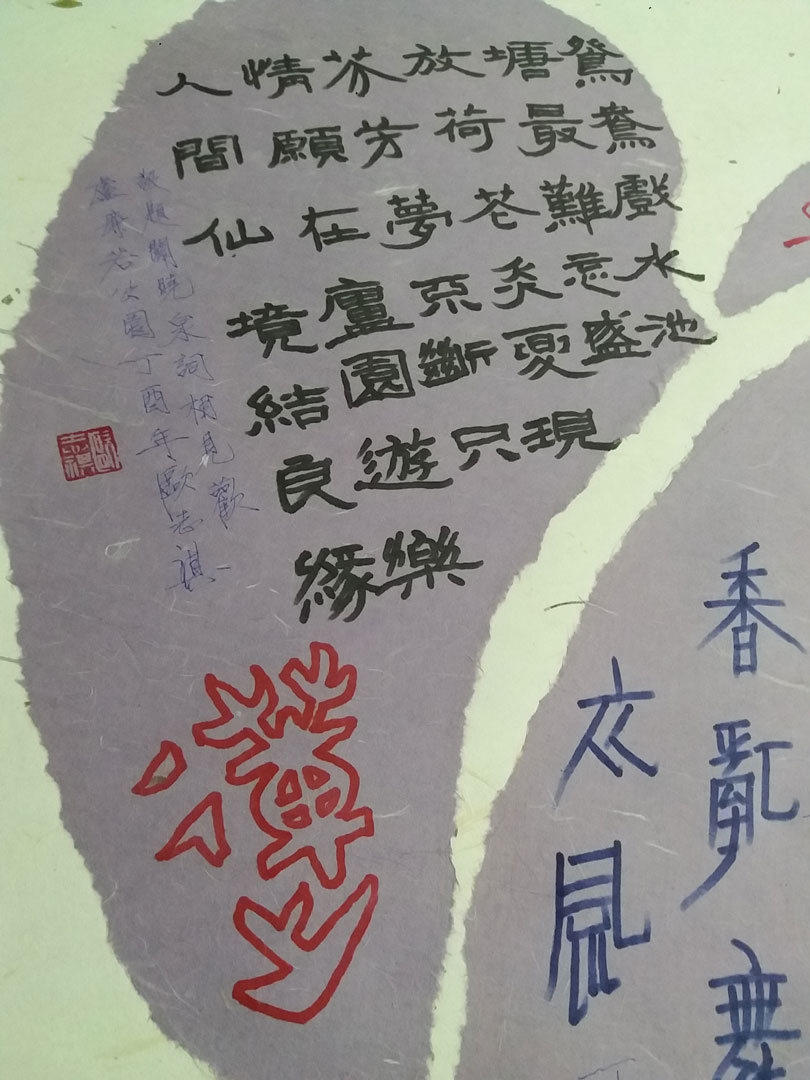 鴛鴦戲水池
塘最難忘盛
放荷花炎夏現
芬芳夢亞斷只
情願在廬園遊樂
人間仙境結良緣
敬題關曉泉詞相見歡
盧廉若公園丁酉年歐志祺
香亂
衣風